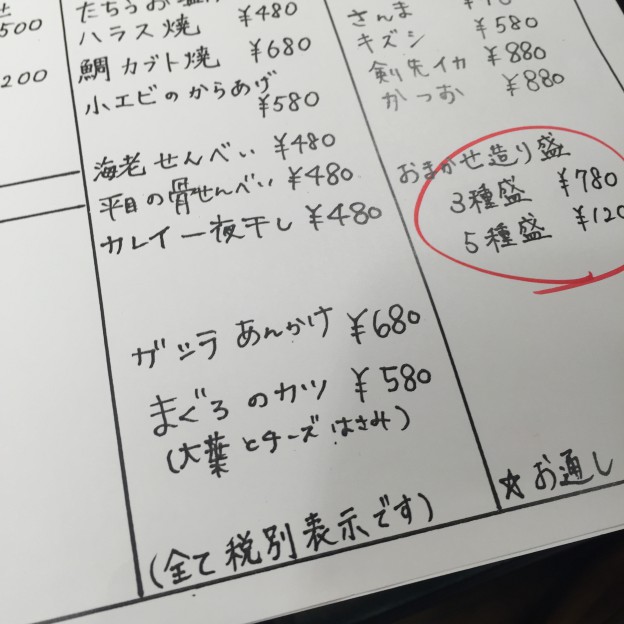 500
200
ハラス焼 ¥480
鯛カブト焼 ¥680
小エビのからあげ
¥580
海老せんべい ¥480
平目の骨せんべい ¥480
カレイ一夜干し ¥480
ガシラあんかけ ¥680
まぐろのカツ ¥580
(大葉とチーズはさみ)
(全て税別表示です)
さんま
キズシ ¥580
剣先イカ ¥880
かつお ¥880
おまかせ造り盛
3種盛 ¥780
5種盛 ¥120
☆お通し